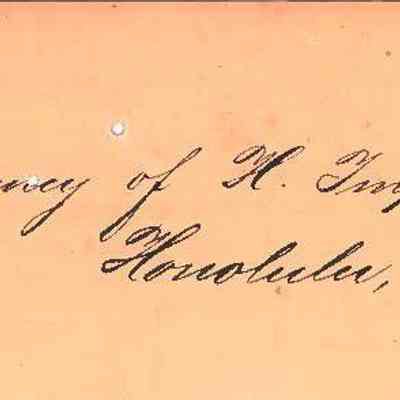 ncy of H. Imp
Honolulu,